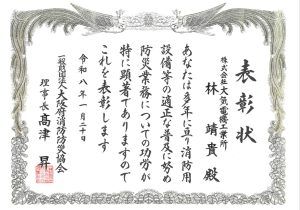 表彰状
株式会社大気電機工業所
林靖貴殿
あなたは多年に亘り消防用
設備等の適正な普及に努め
防災業務についての功労が
特に顕著でありますので
これを表彰します
令和八年一月二十日
一般財団法人大阪府消防防災協会
理事長高津昇